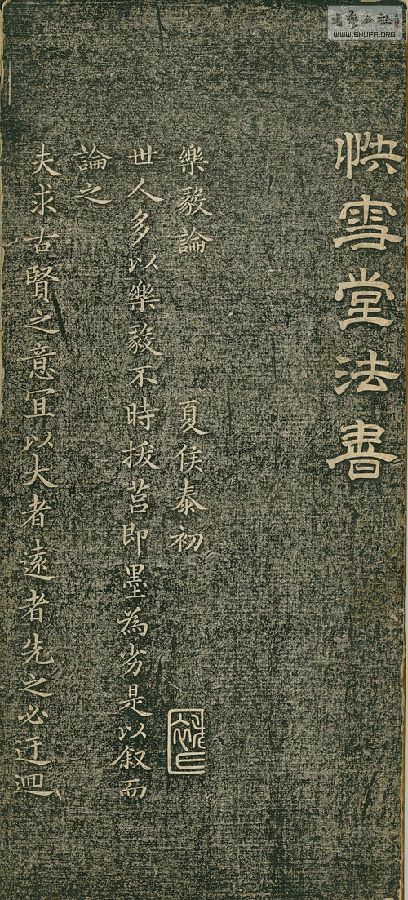 快雪堂法書
樂毅論　夏侯泰初
世人多以樂毅不時拔莒即墨為劣是以叙而
論之
夫求古賢之意宜以大者遠者先之必迂迴
書法公社
WWW.SHUFA.ORG